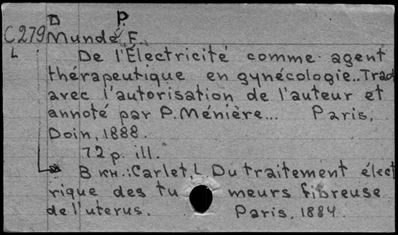 D P.
C279 Mundé, F.
L De l'Électricité comme agent
thérapeutique en gynécologie..Trad
avec l'autorisation de l'auteur et
annoté par P. Ménière... Paris,
Doin, 1888.
72 p. ill.
В кн.: Carlet, L Du traitement élect
rique des tu meurs fibreuse
de l'uterus. Paris, 1884.